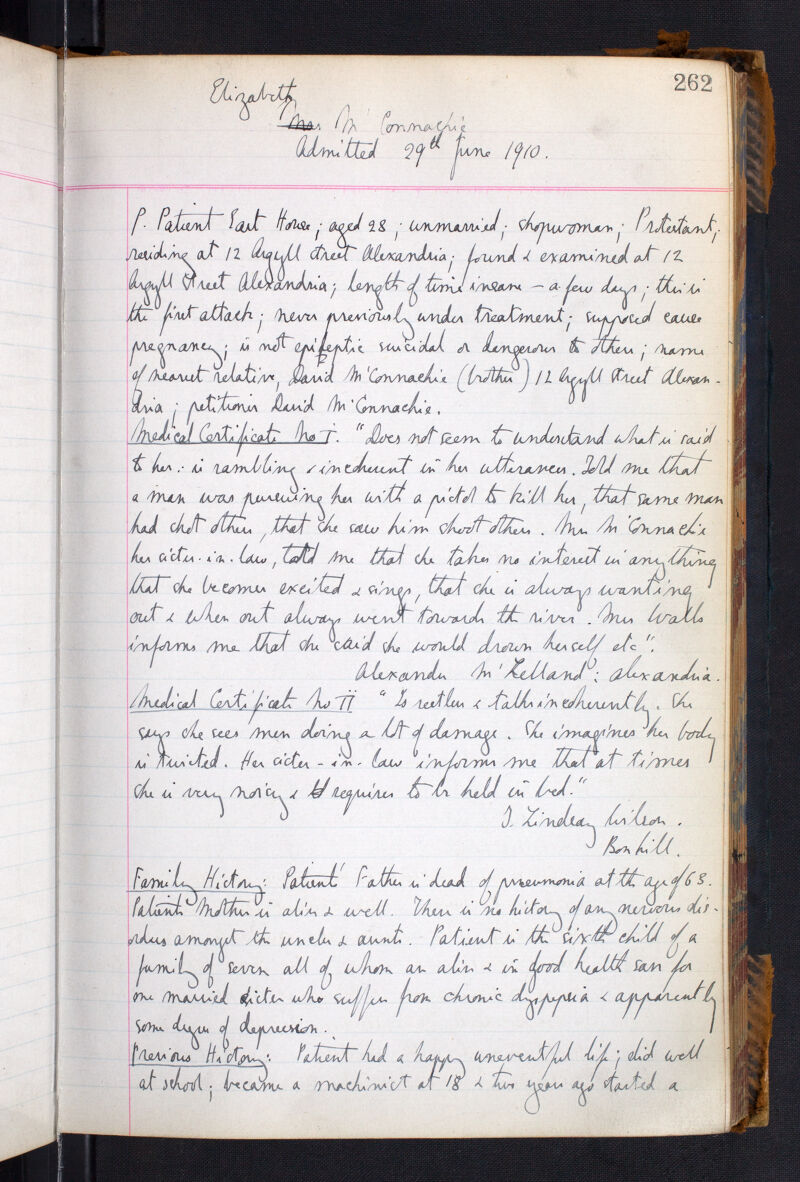 262
Elizabeth
Mrs M'Connachie
Admitted 29th June 1910.
P. Patient East House; aged 28; unmarried; shopwoman; Protestant;
residing at 12 Argyll Street Alexandria; found & examined at 12
Argyll Street Alexandria; length of time insane - a few days; this is
the first attack; never previously under treatment; supposed cause
pregnancy; is not epileptic suicidal or dangerous to others; name
of nearest relative, David M'Connachie (brother) 12 Argyll Street Alexan-
dria; petitioner David M'Connachie.
Medical Certificate No I. "Does not seem to understand what is said
to her: is rambling & incoherent in her utterances. Told me that
a man was pursuing her with a pistol to kill her, that same man
had shot others, that she saw him shoot others. Mrs M'Connachie
her sister-in-law, told me that she takes no interest in anything
that she becomes excited & sings, that she is always wanting
out & when out always went towards the river. Mrs Walls
informs me that she said she would drown herself etc".
Alexander M'Lelland: Alexandria.
Medical Certificate No II "Is restless & talks incoherently. She
says she sees men doing a lot of damage. She imagines her body
is twisted. Her sister-in-law informs me that at times
she is very noisy & requires to be held in bed."
J. Lindsay Wilson.
Bonhill.
Family History: Patient's Father is dead of pneumonia at the age of 63.
Patients Mother is alive & well. There is no history of any nervous dis-
orders amongst the uncles & aunts. Patient is the sixth child of a
family of seven all of whom are alive & in good health save for
one married sister who suffers from chronic dyspepsia & apparently
some degree of depression.
Previous History: Patient had a happy uneventful life; did well
at school; became a machinist at 18 & two years ago started a